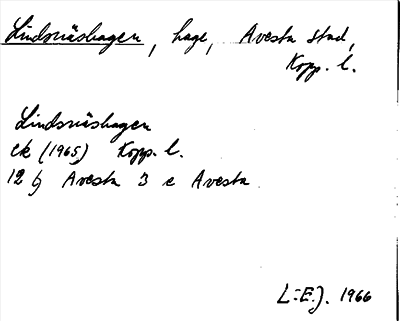 Lindsnäshagen, hage, Avesta stad,
Kopp. l.
Lindsnäshagen
ek (1965) Kopp. l.
12 G Avesta 3 e Avesta
L-E.J. 1966